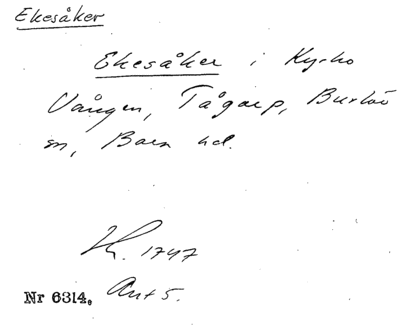 Ekesåker
Ekesåker i Kyrko
Vången, Tågarp, Burlöv
sn, Bara hd.
1747
Nr 6314. Ant 5.